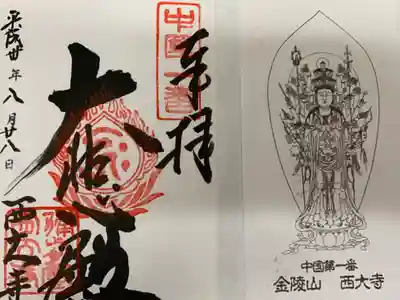 奉拝
中國一番
大悲殿
平成廿年八月廿八日
西大寺
中国第一番
金陵山 西大寺